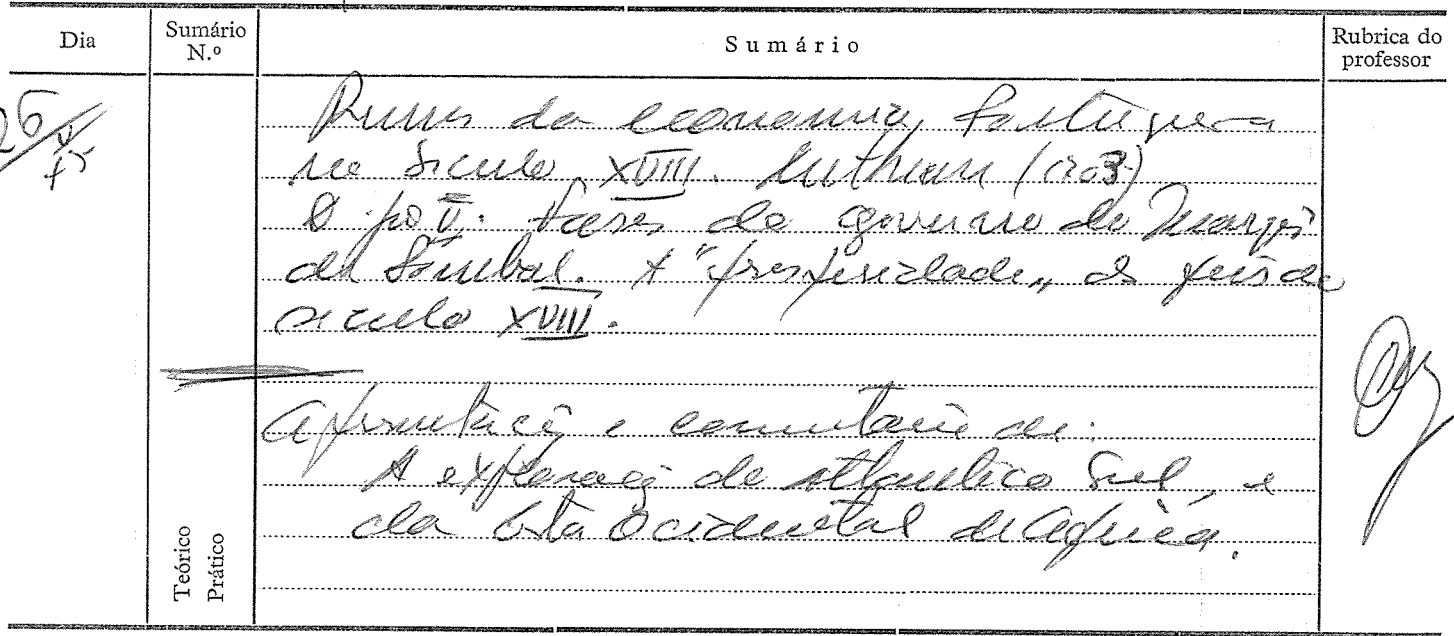 Dia
Sumário N.º
Sumário
Rubrica do professor
26/V
Rumos da economia Portuguesa
no século XVIII. Methuen (1703)
D. João V. Fases do governo do Marquês
de Pombal. A "prosperidade" de fins do
século XVIII.
Apresentação e comentário de:
A exploração do Atlântico Sul, e
da Costa Ocidental de África.
Teórico
Prático